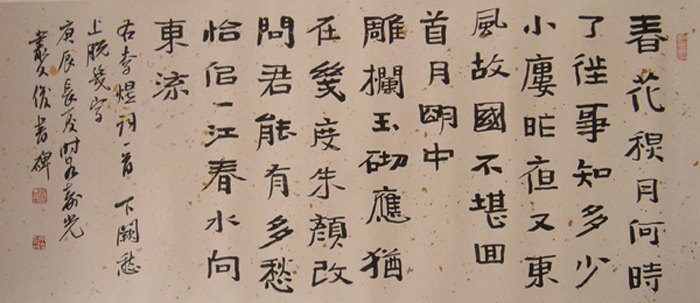 春花秋月何時
了徃事知多少
小廔昨夜又東
風故國不堪回
首月明中
雕欄玉砌應猶
在幾度朱顔改
問君能有多愁
恰佀一江春水向
東流
右李煜詞一首 下闋愁
上脱幾字
庚辰長夏時壽光
叢文俊書